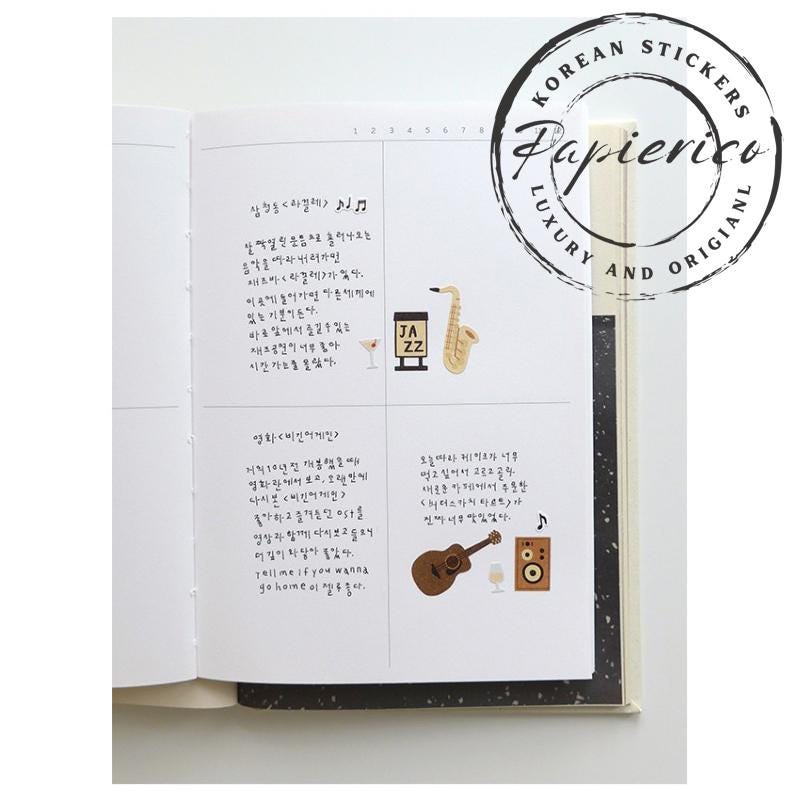 KOREAN STICKERS
Papierico
LUXURY AND ORIGIANL
1 2 3 4 5 6 7 8
삼청동 <라끌레>
살짝 열린 문틈으로 흘러나오는
음악을 따라 내려가면
재즈바 <라끌레>가 있다.
이곳에 들어가면 다른 세계에
있는 기분이 든다.
바로 앞에서 즐길 수 있는
재즈공연이 너무 좋아
시간 가는 줄 몰랐다.
JA
ZZ
영화 <비긴어게인>
거의 10년 전 개봉했을 때
영화관에서 보고, 오랜만에
다시 본 <비긴어게인>
좋아하고 즐겨듣던 ost를
영상과 함께 다시 보고 들으니
더 깊이 와닿아 좋았다.
tell me if you wanna
go home이 젤루 좋다.
오늘따라 케이크가 너무
먹고싶어서 고르고 골라
새로운 카페에서 주문한
<버터스카치 타르트>가
진짜 너무 맛있었다.